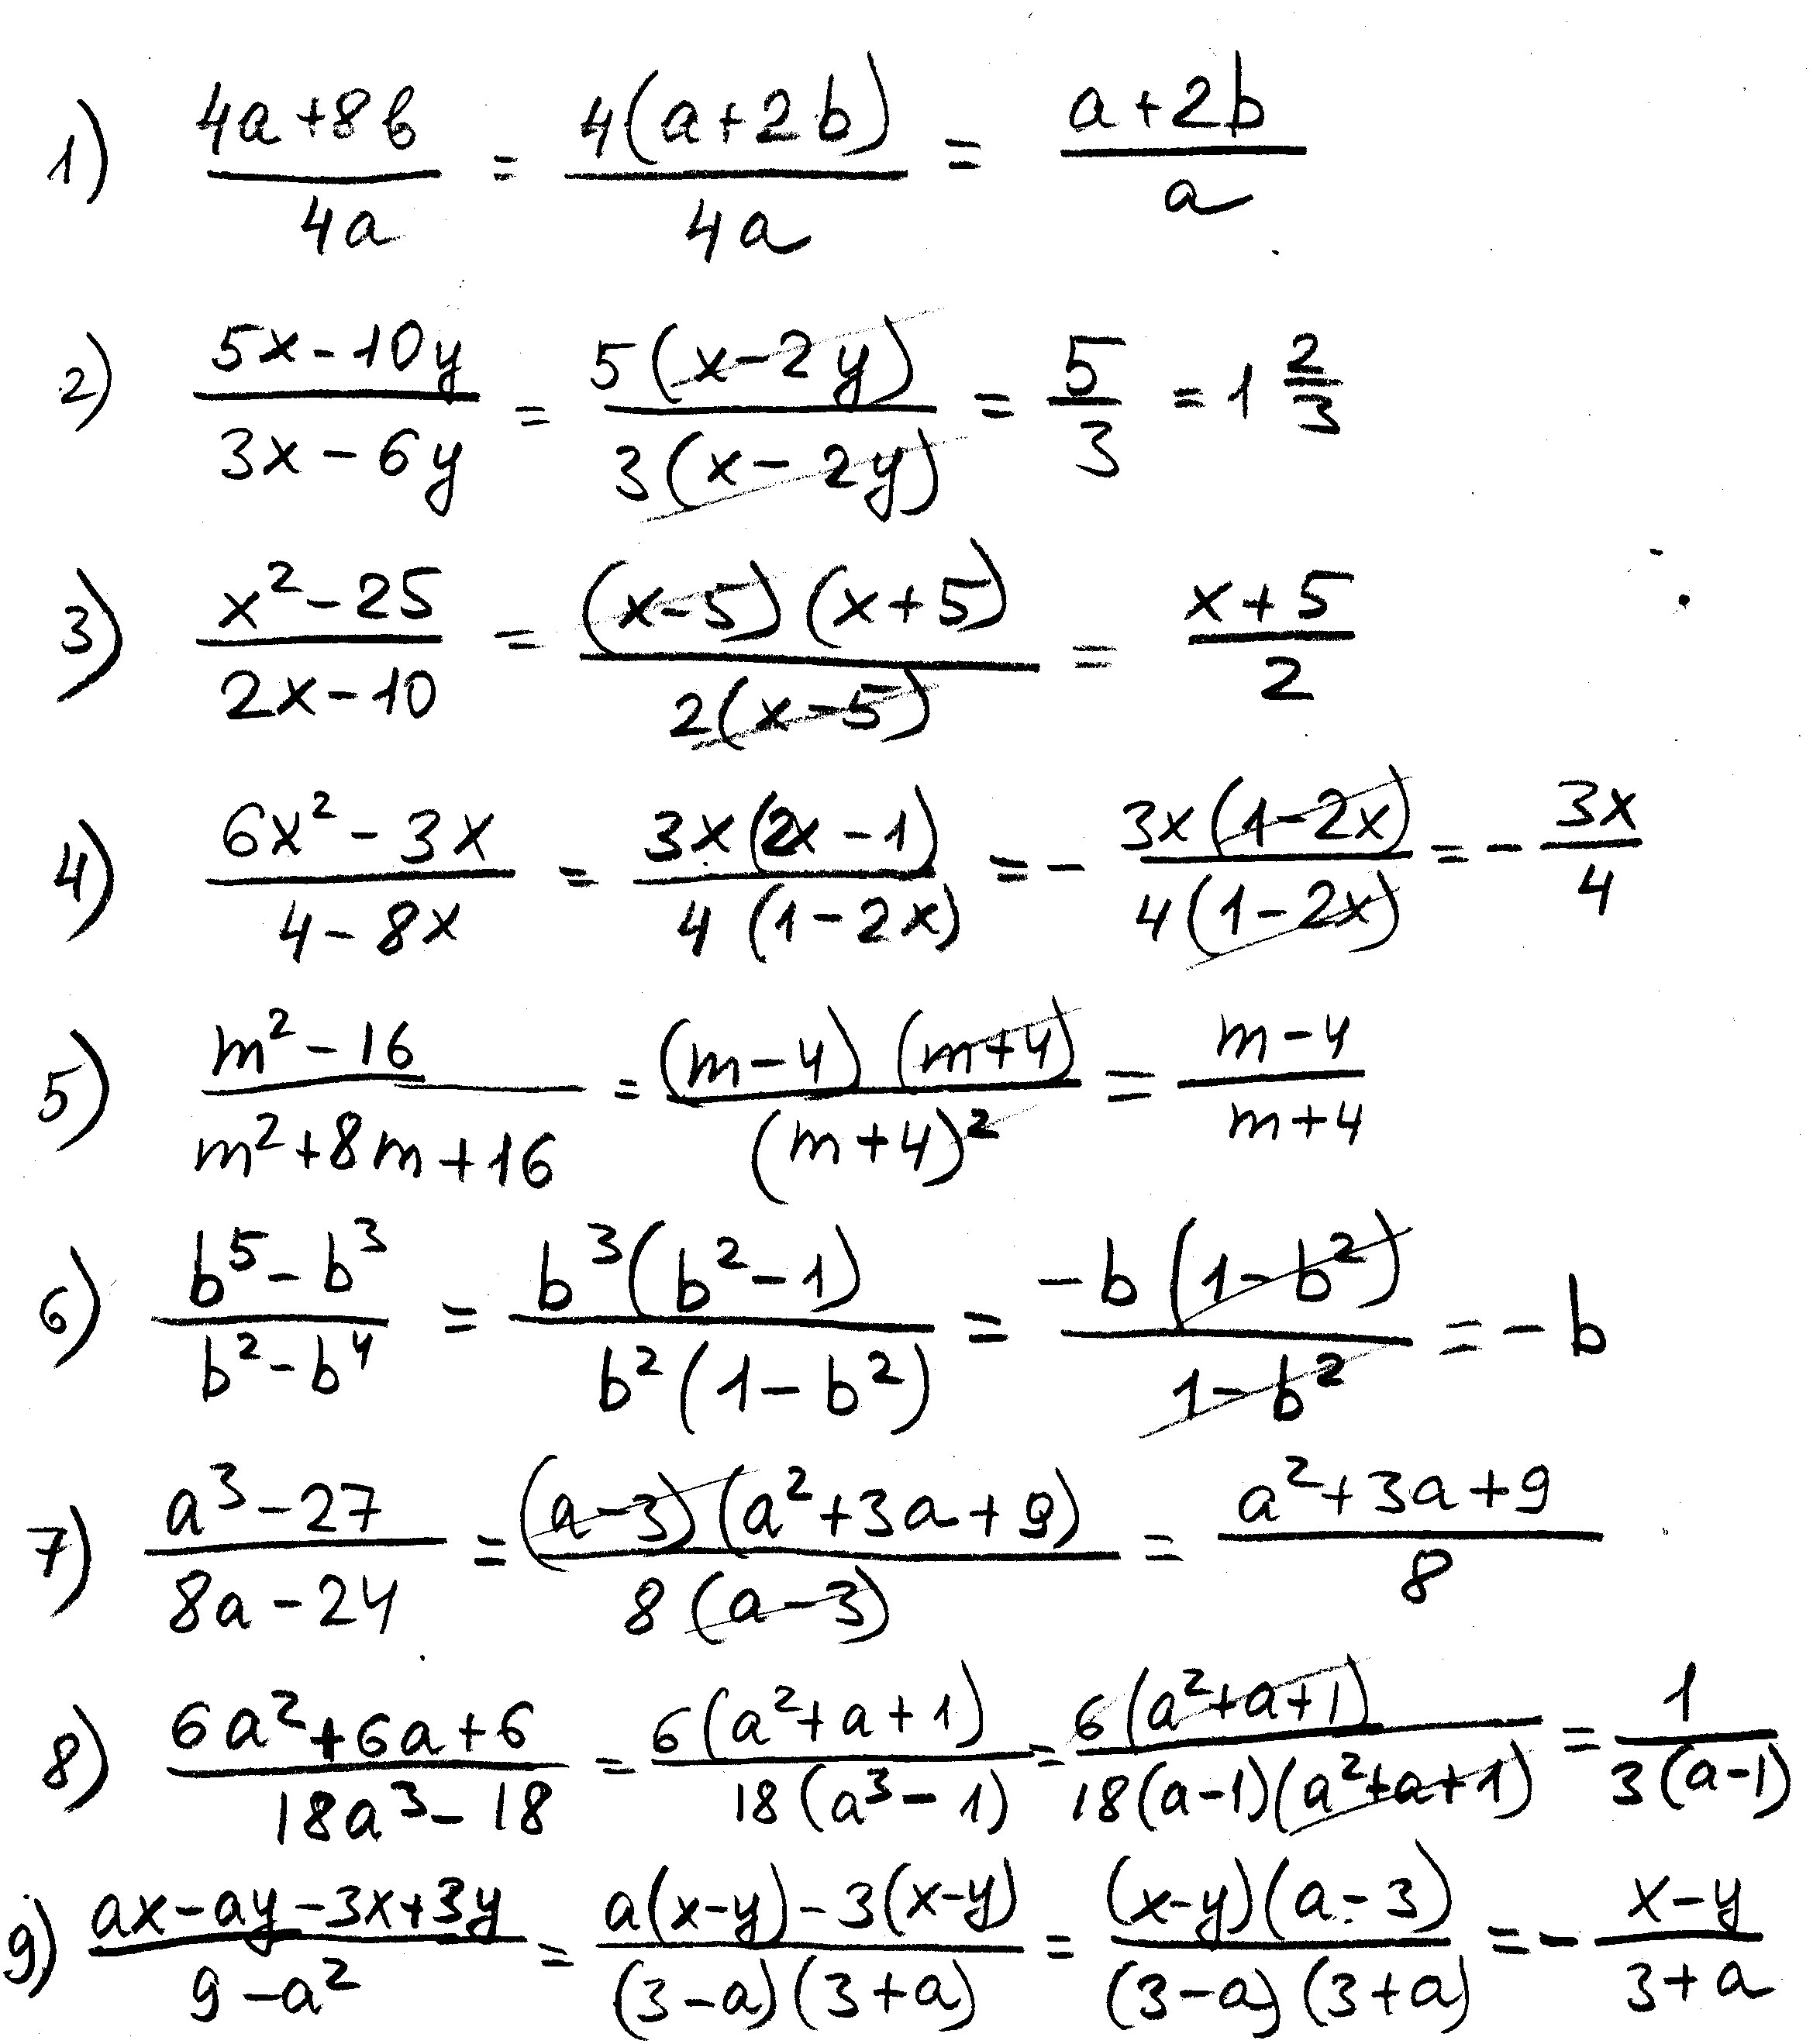 1) (4a+8b)/(4a) = (4(a+2b))/(4a) = (a+2b)/a
2) (5x-10y)/(3x-6y) = (5(x-2y))/(3(x-2y)) = 5/3 = 1 2/3
3) (x²-25)/(2x-10) = ((x-5)(x+5))/(2(x-5)) = (x+5)/2
4) (6x²-3x)/(4-8x) = (3x(2x-1))/(4(1-2x)) = - (3x(1-2x))/(4(1-2x)) = - 3x/4
5) (m²-16)/(m²+8m+16) = ((m-4)(m+4))/((m+4)²) = (m-4)/(m+4)
6) (b⁵-b³)/(b²-b⁴) = (b³(b²-1))/(b²(1-b²)) = (-b(1-b²))/(1-b²) = -b
7) (a³-27)/(8a-24) = ((a-3)(a²+3a+9))/(8(a-3)) = (a²+3a+9)/8
8) (6a²+6a+6)/(18a³-18) = (6(a²+a+1))/(18(a³-1)) = (6(a²+a+1))/(18(a-1)(a²+a+1)) = 1/(3(a-1))
9) (ax-ay-3x+3y)/(9-a²) = (a(x-y)-3(x-y))/((3-a)(3+a)) = ((x-y)(a-3))/((3-a)(3+a)) = - (x-y)/(3+a)